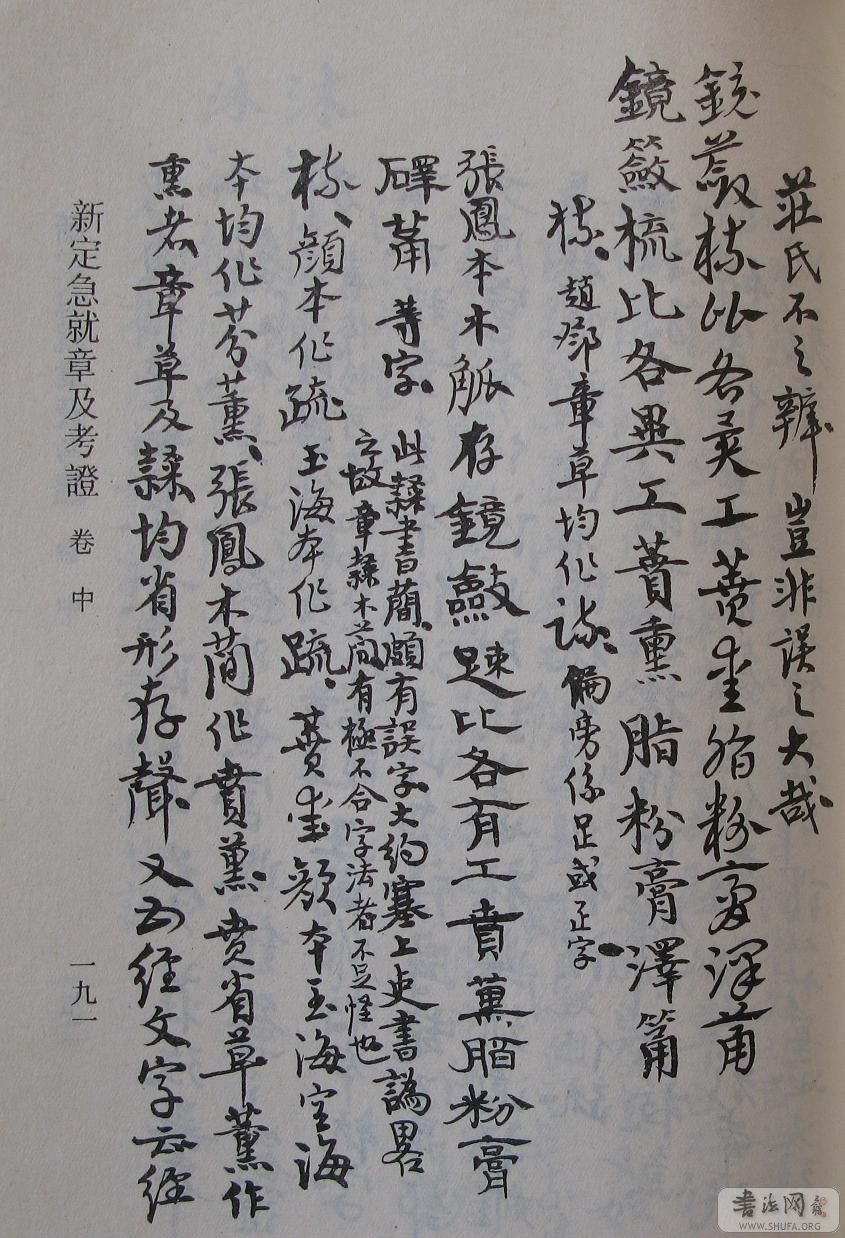 莊氏不之辨豈非誤之大哉
鏡蘞梳比各異工蕡熏脂粉膏澤筩
鏡籢梳比各異工蕡熏脂粉膏澤筩
梳、趙鄧章草均作疏、偏旁係足或疋字
張鳳本木觚存鏡斂疎比各有工賁薰脂粉膏
䃽莆等字
此隸書蕳、頗有誤字大約塞上吏書譌畧
之故章隸木蕳有極不合字法者不足怪也
梳、顏本作疏玉海本作䟽、蕡熏顏本玉海空海
本均作芬薰、張鳳木蕳作賁薰賁省草薰作
熏者章草及隸均省形存聲又五經文字云經
新定急就章及考證 卷 中
一九一
書法网
WWW.SHUFA.ORG